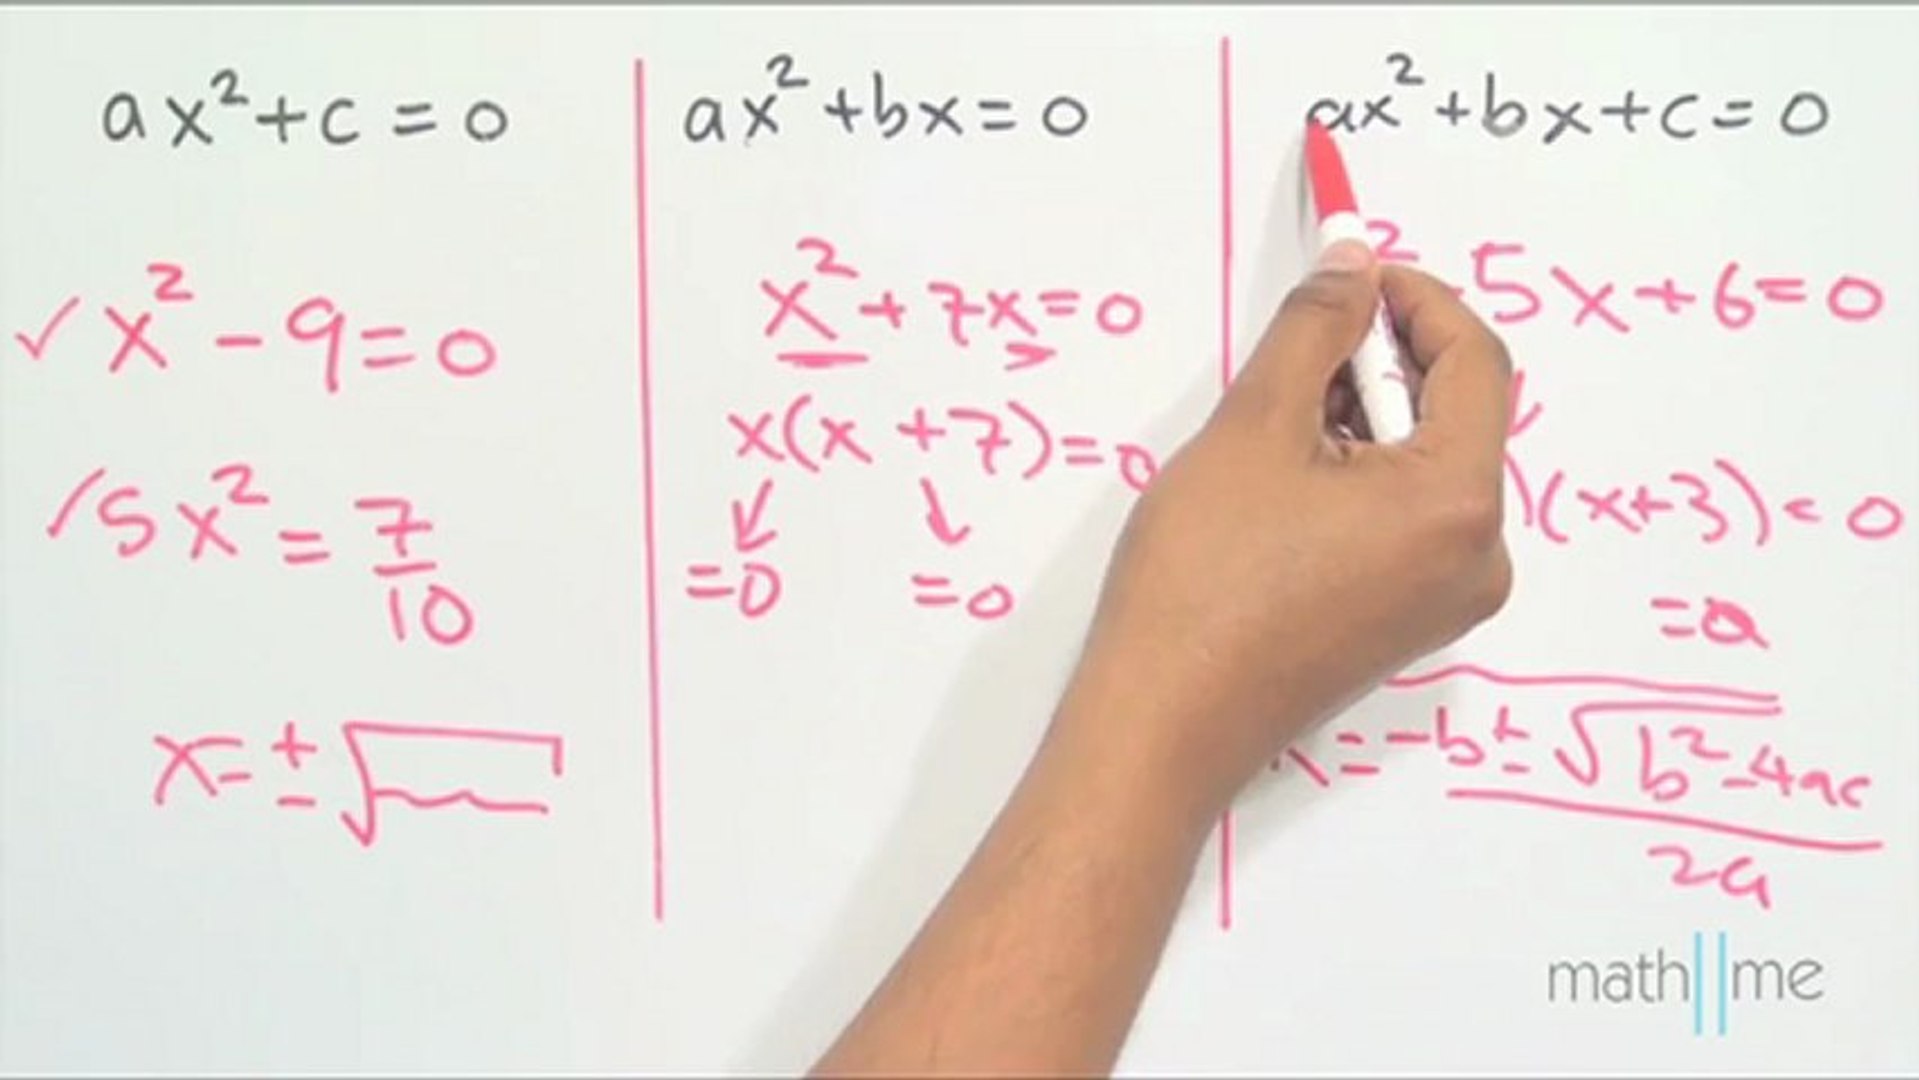 ax²+c=0
✓x²-9=0
✓5x²=7/10
x=±√
ax²+bx=0
x²+7x=0
x(x+7)=0
=0 =0
ax²+bx+c=0
² 5x+6=0
)(x+3)=0
=0
=-b±√b²-4ac
2a
math||me